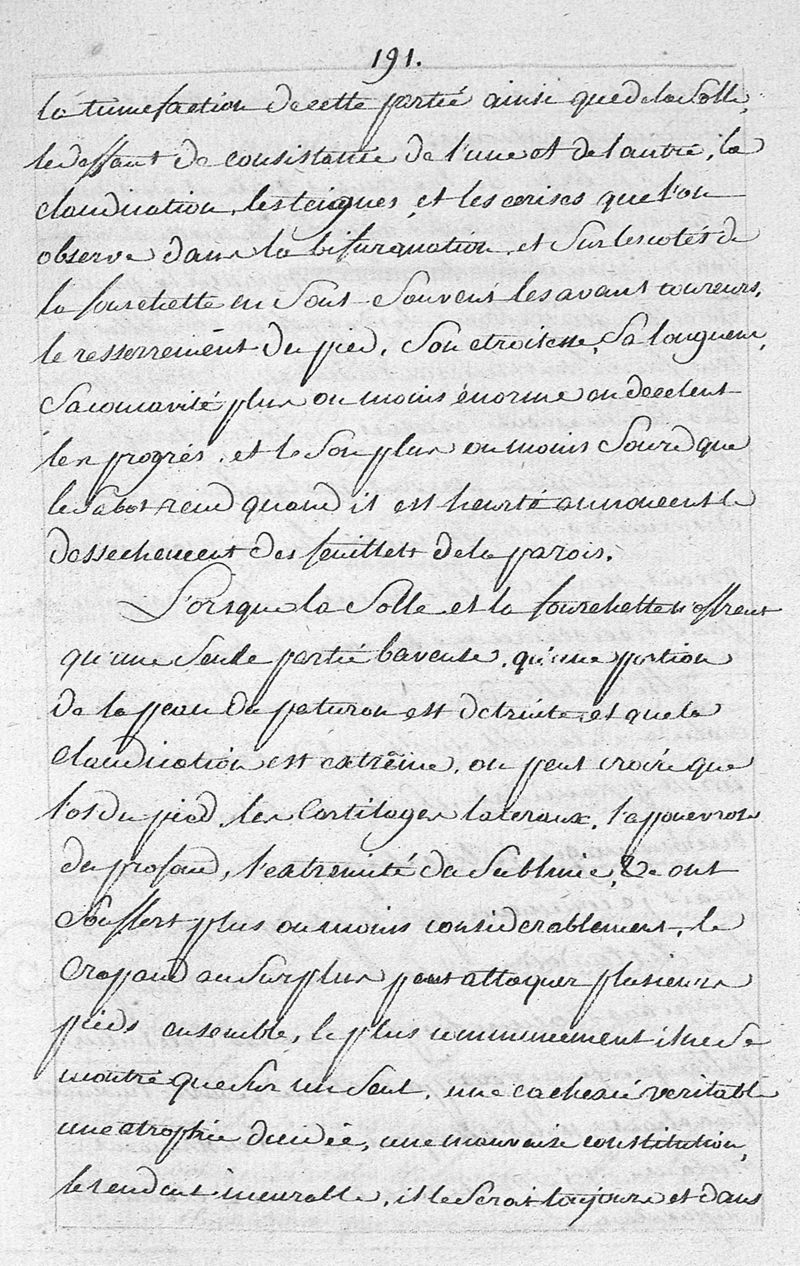 191.
la tumefaction de cette partie ainsi que de la Solle,
le deffaut de consistance de l'une et de l'autre, la
claudication, les teignes, et les cerises que l'on
observe dans la bifurquation, et Sur les cotés de
la fourchette en Sont Souvent les avant coureurs,
le resserrement du pied, Son etroitesse, Sa longueur,
Sa concavité plus ou moins énorme en decelent
les progrés, et le Son plus ou moins Sourd que
le Sabot rend quand il est heurté annoncent le
dessechement des feuillets de la parois.
Lorsque la Solle et la fourchette n'offrent
qu'une Seule partie baveuse, qu'une portion
de la peau du paturon est detruite et que la
claudication est extrême, on peut croire que
l'os du pied, les Cartilages lateraux, l'aponevrose
du profond, l'extremité du Sublime, &c ont
Souffert plus ou moins considerablement, le
Crapaud au Surplus peut attaquer plusieurs
pieds ensemble, le plus communement il ne Se
montre que Sur un Seul, une cachexie veritable
une atrophie decidée, une mauvaise constitution,
le rendent incurable, il le Sera toujours et dans